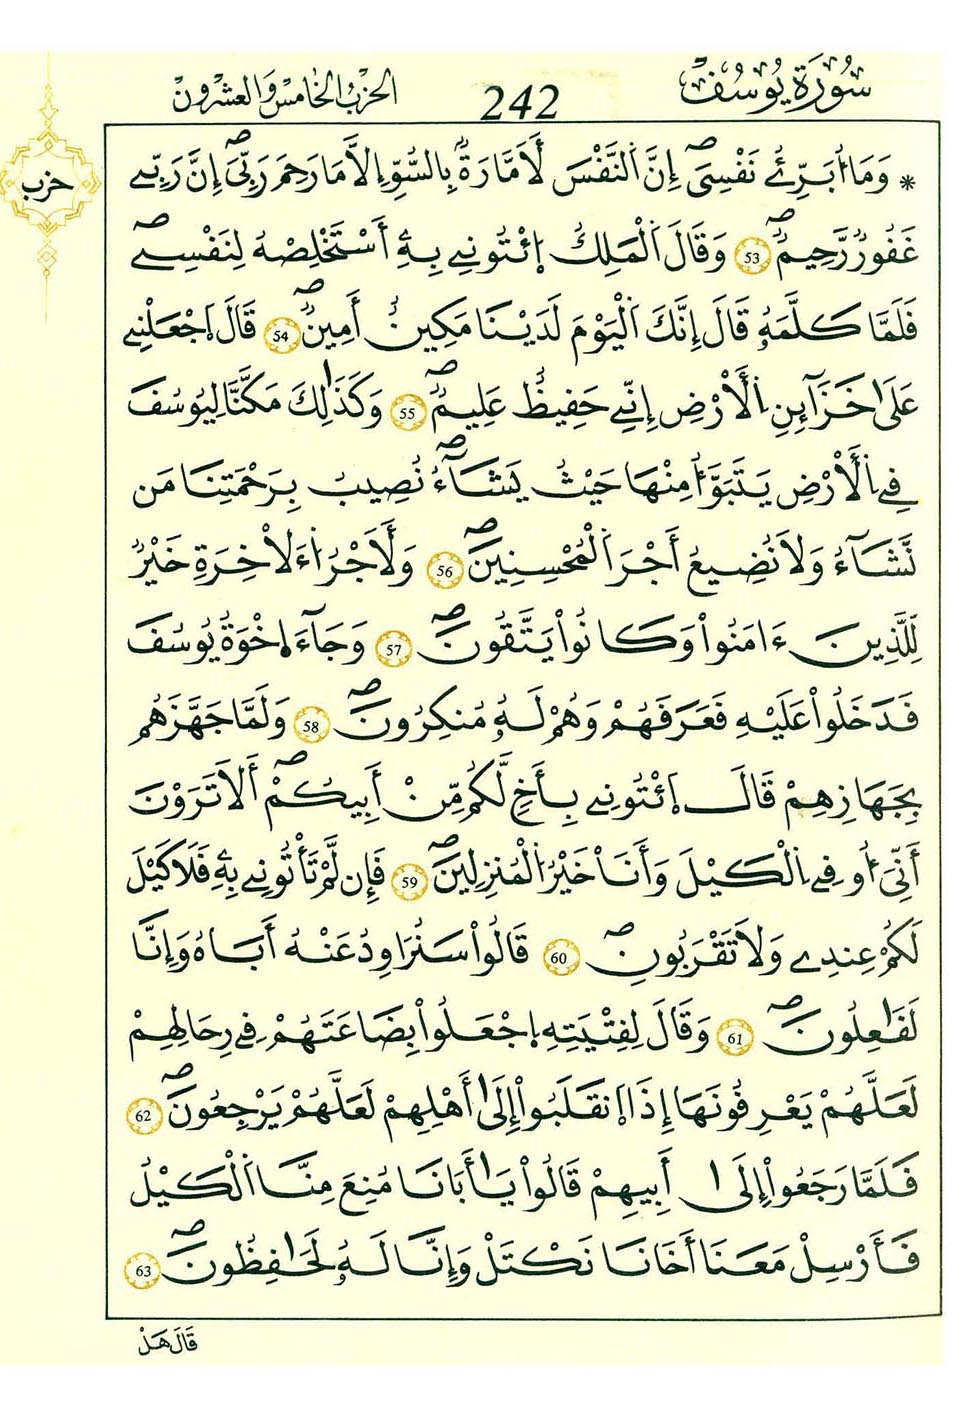 سُورَةُ يُوسُفَ 242 الحِزْبُ الخَامِسُ وَالعِشْرُونَ
حزب
* وَمَا أُبَرِّئُ نَفْسِيَ إِنَّ اَلنَّفْسَ لَأَمَّارَةُۢ بِالسُّوٓءِ اِلَّا مَا رَحِمَ رَبِّيَ إِنَّ رَبِّے
غَفُورٞ رَّحِيمٞ 53 وَقَالَ اَلْمَلِكُ اُئْتُونِے بِهِۦٓ أَسْتَخْلِصْهُ لِنَفْسِے
فَلَمَّا كَلَّمَهُۥ قَالَ إِنَّكَ اَلْيَوْمَ لَدَيْنَا مَكِينٌ أَمِينٞ 54 قَالَ اَجْعَلْنِے
عَلَىٰ خَزَآئِنِ اِلْأَرْضِ إِنِّے حَفِيظٌ عَلِيمٞ 55 وَكَذَٰلِكَ مَكَّنَّا لِيُوسُفَ
فِے اِلْأَرْضِ يَتَبَوَّأُ مِنْهَا حَيْثُ يَشَآءُ نُصِيبُ بِرَحْمَتِنَا مَن
نَّشَآءُ وَلَا نُضِيعُ أَجْرَ اَلْمُحْسِنِينَ 56 وَلَأَجْرُ اُءَلَاخِرَةِ خَيْرٞ
لِّلَّذِينَ ءَامَنُواْ وَكَانُواْ يَتَّقُونَ 57 وَجَآءَ اِخْوَةُ يُوسُفَ
فَدَخَلُواْ عَلَيْهِ فَعَرَفَهُمْ وَهُمْ لَهُۥ مُنكِرُونَ 58 وَلَمَّا جَهَّزَهُم
بِجَهَازِهِمْ قَالَ اَئْتُونِے بِأَخٖ لَّكُم مِّنْ أَبِيكُمْ أَلَا تَرَوْنَ
أَنِّيَ أُوفِے اِلْكَيْلَ وَأَنَا خَيْرُ اُلْمُنزِلِينَ 59 فَإِن لَّمْ تَأْتُونِے بِهِۦ فَلَا كَيْلَ
لَكُمْ عِندِے وَلَا تَقْرَبُونِ 60 قَالُواْ سَنُرَاوِدُ عَنْهُ أَبَاهُ وَإِنَّا
لَفَٰعِلُونَ 61 وَقَالَ لِفِتْيَتِهِ اِجْعَلُواْ بِضَاعَتَهُمْ فِے رِحَالِهِمْ
لَعَلَّهُمْ يَعْرِفُونَهَا إِذَا اَنقَلَبُواْ إِلَىٰ أَهْلِهِمْ لَعَلَّهُمْ يَرْجِعُونَ 62
فَلَمَّا رَجَعُواْ إِلَىٰ أَبِيهِمْ قَالُواْ يَٰأَبَانَا مُنِعَ مِنَّا اَلْكَيْلُ
فَأَرْسِلْ مَعَنَا أَخَانَا نَكْتَلْ وَإِنَّا لَهُۥ لَحَٰفِظُونَ 63
قَالَ هَلْ